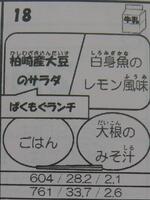 18
牛乳
かしわざきさんだいず
柏崎産大豆
のサラダ
しろみざかな
白身魚の
ふうみ
レモン風味
ぱくもぐランチ
ごはん
だいこん
大根の
みそ汁
604 / 28.2 / 2.1
761 / 33.7 / 2.6